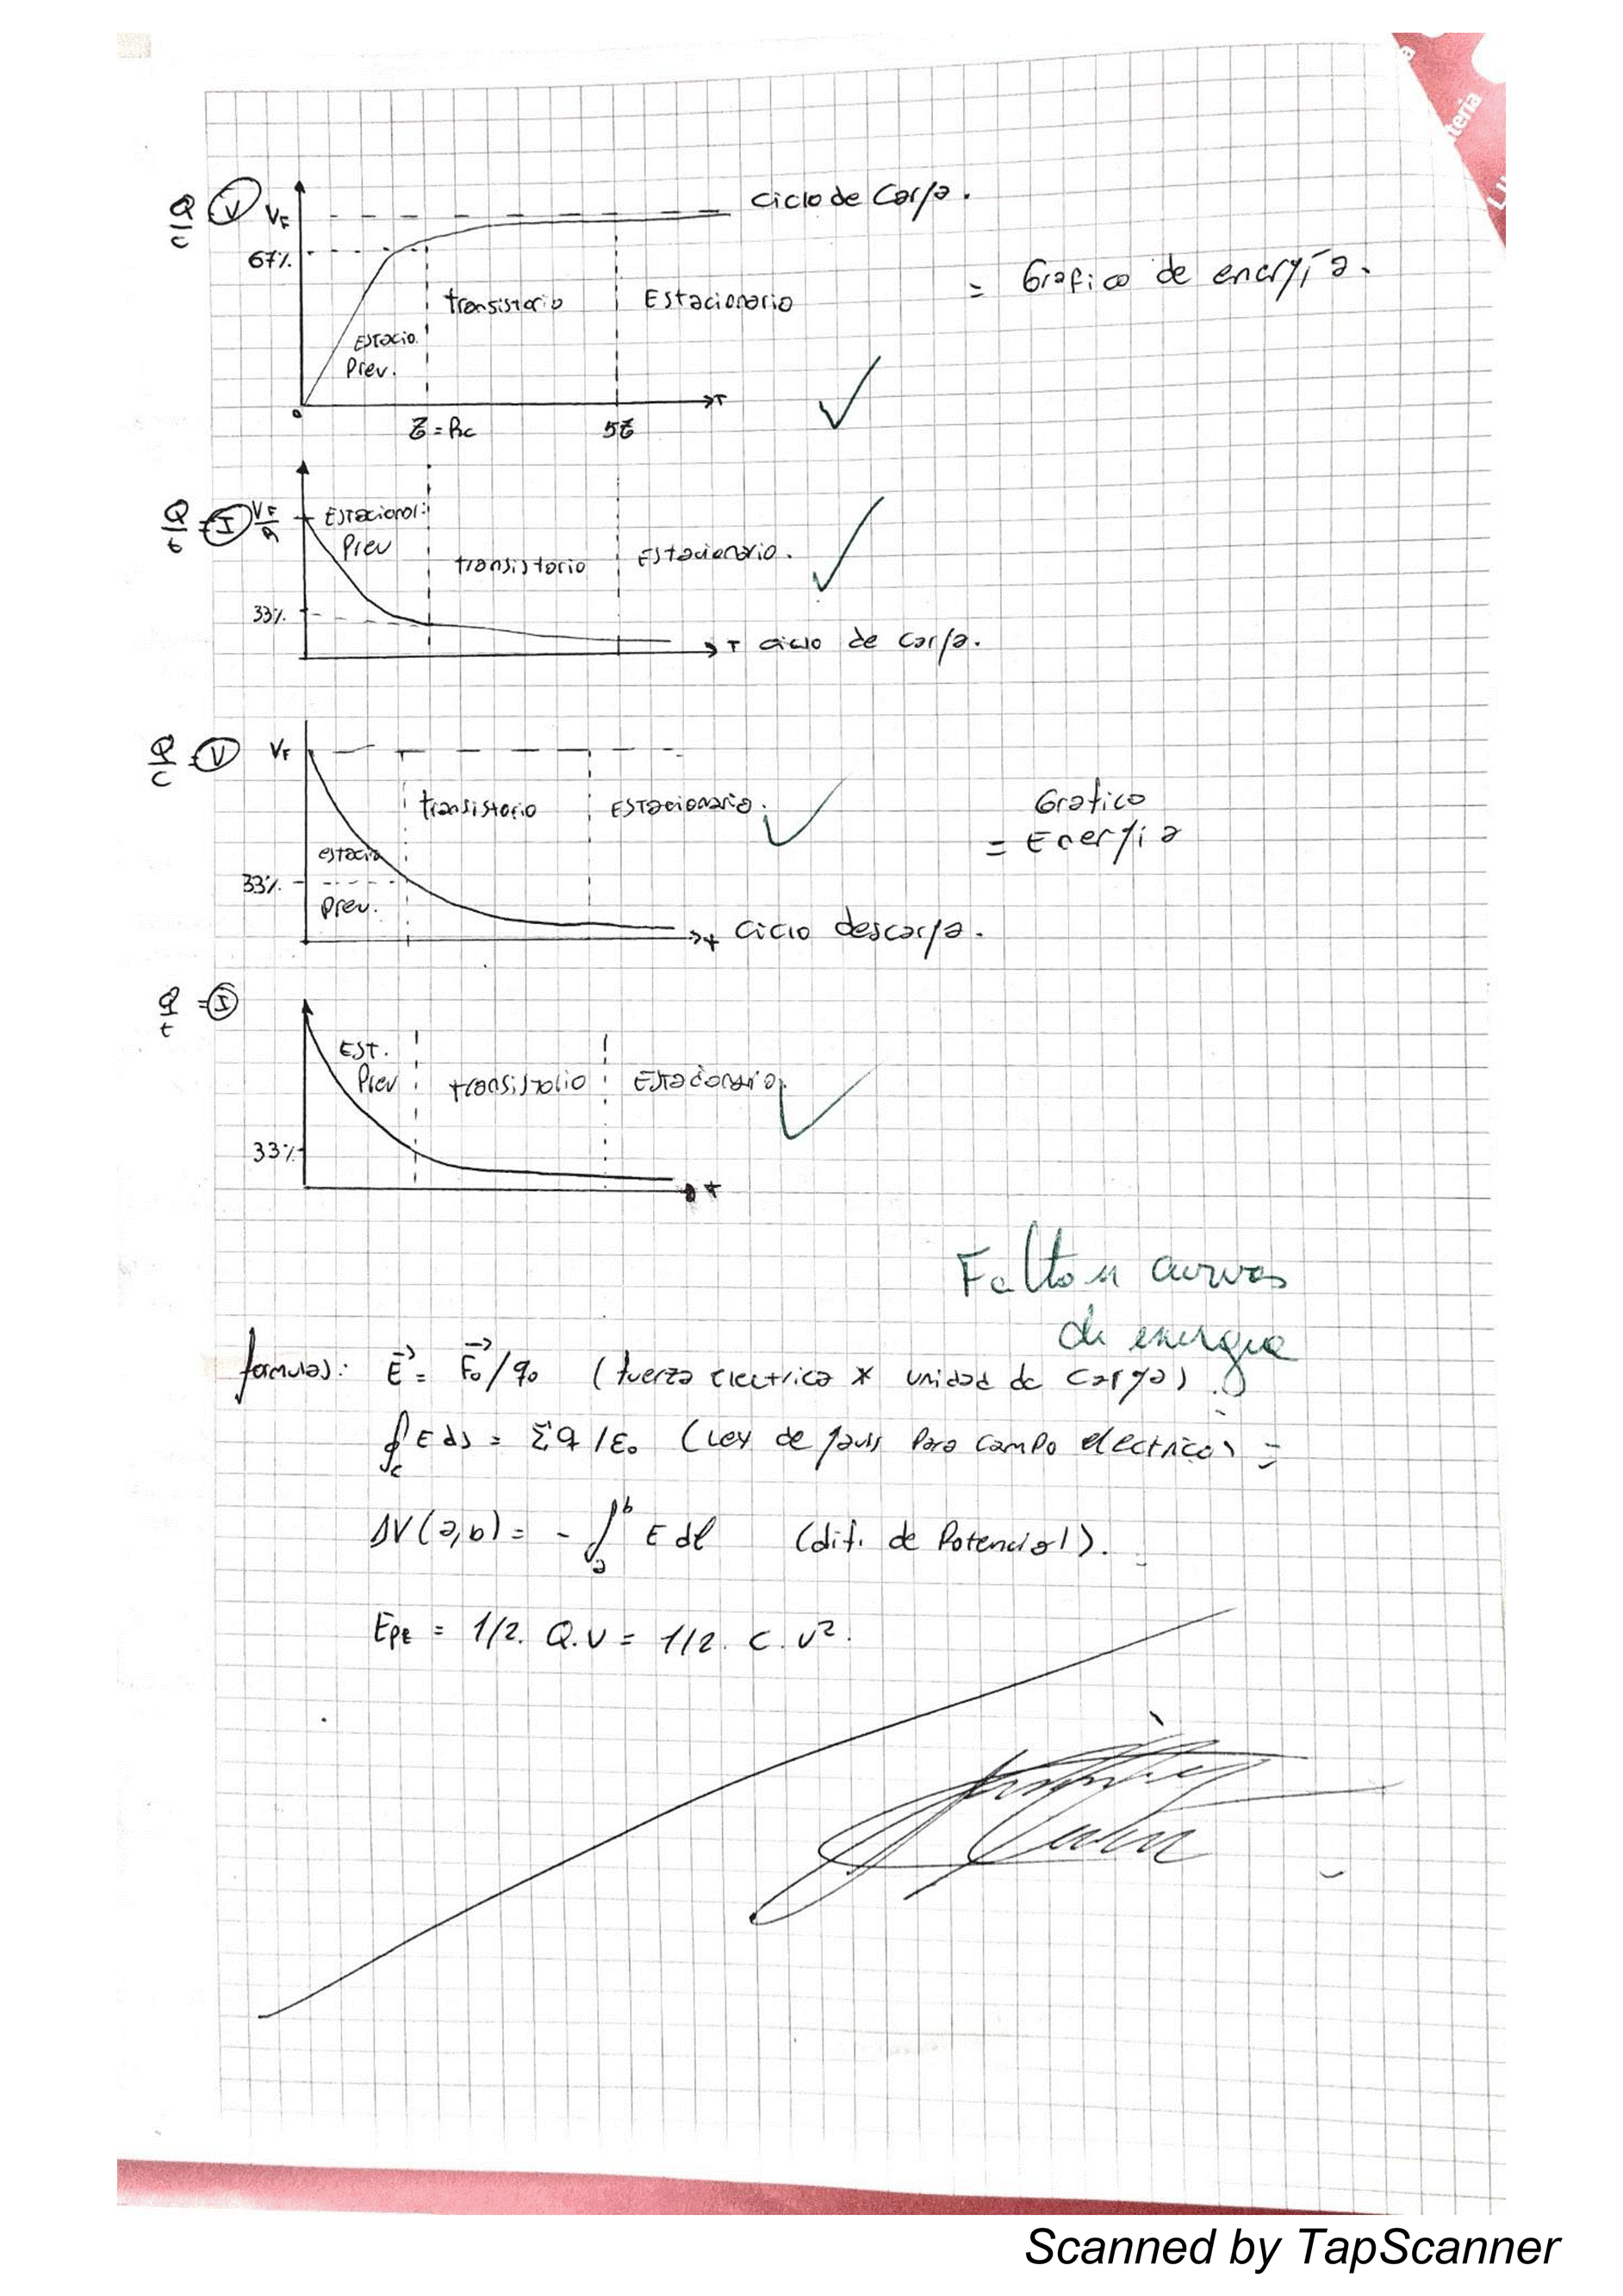 Q/C V VF ciclo de Carga.
67%
= Grafico de energía.
transistorio Estacionario
Estacio.
Prev.
0 T
τ = Rc 5τ
Q/t = I VF/R Estacionar:
Prev
transistorio Estacionario.
33%
T ciclo de carga.
Q/C = V VF
transistorio Estacionario.
Grafico
= Energia
estacio
33%
Prev.
t ciclo descarga.
Q/t = I
EST.
Prev transistorio Estacionario.
33%
t
Faltan curvas
de energia
formulas: E = Fo/qo (fuerza electrica * unidad de carga).
∮c E ds = Σq/ε₀ (Ley de gauss Para campo electrico) =
ΔV(a,b) = - ∫ₐᵇ E dl (dif. de Potencial).
EPE = 1/2. Q.V = 1/2. C.V².
teria
Scanned by TapScanner